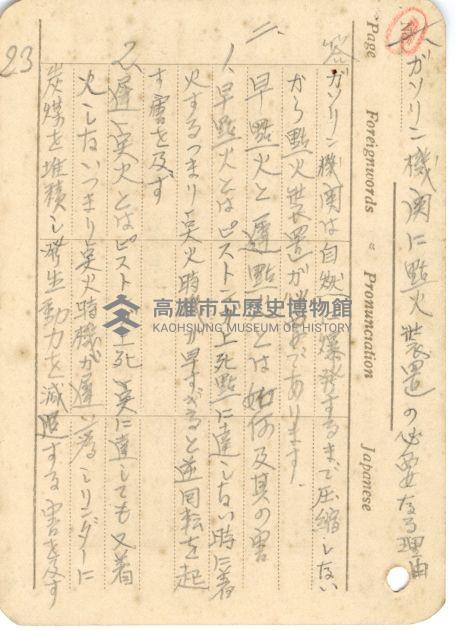 ガソリン機関に點火装置の必要なる理由
Page Foreignwords Pronunciation Japanese
答 ガソリン機関は自然爆発するまで圧縮しない
から點火装置が必要であります
二、早點火と遅點火とは如何及其の害
1、早點火とはピストンが上死點に達しない時に着
火するつまり点火時機が早すぎると逆回転を起
す害を及す
2、遅点火とはピストン上死点に達しても又着
火しないつまり点火時機が遅い為シリンダーに
炭煤を堆積し発生動力を減退する害を及す
23
高雄市立歷史博物館
KAOHSIUNG MUSEUM OF HISTORY